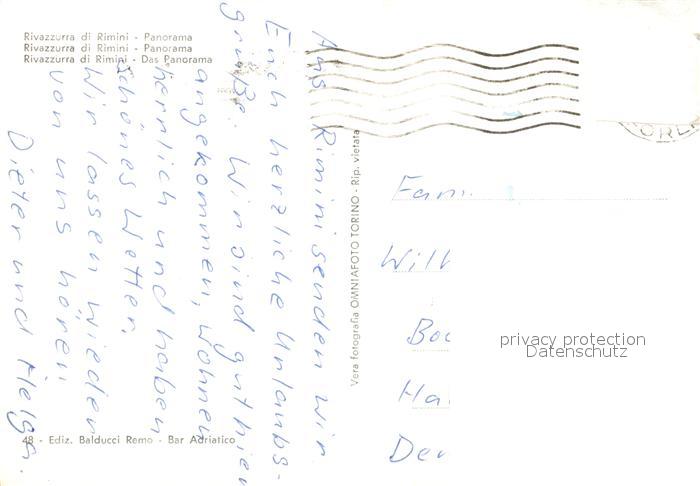 Rivazzurra di Rimini - Panorama
Rivazzurra di Rimini - Panorama
Rivazzurra di Rimini - Das Panorama
Aus Rimini senden wir
Euch herzliche Urlaubs-
grüße. Wir sind gut hier
angekommen, wohnen
herrlich und haben
schönes Wetter.
Wir lassen wieder
von uns hören.
Dieter und Helga.
Vera fotografia OMNIAFOTO TORINO - Rip. vietata
FORLI
Fam.
Wilh
Boc
Ha
Der
privacy protection
Datenschutz
48 - Ediz. Balducci Remo - Bar Adriatico